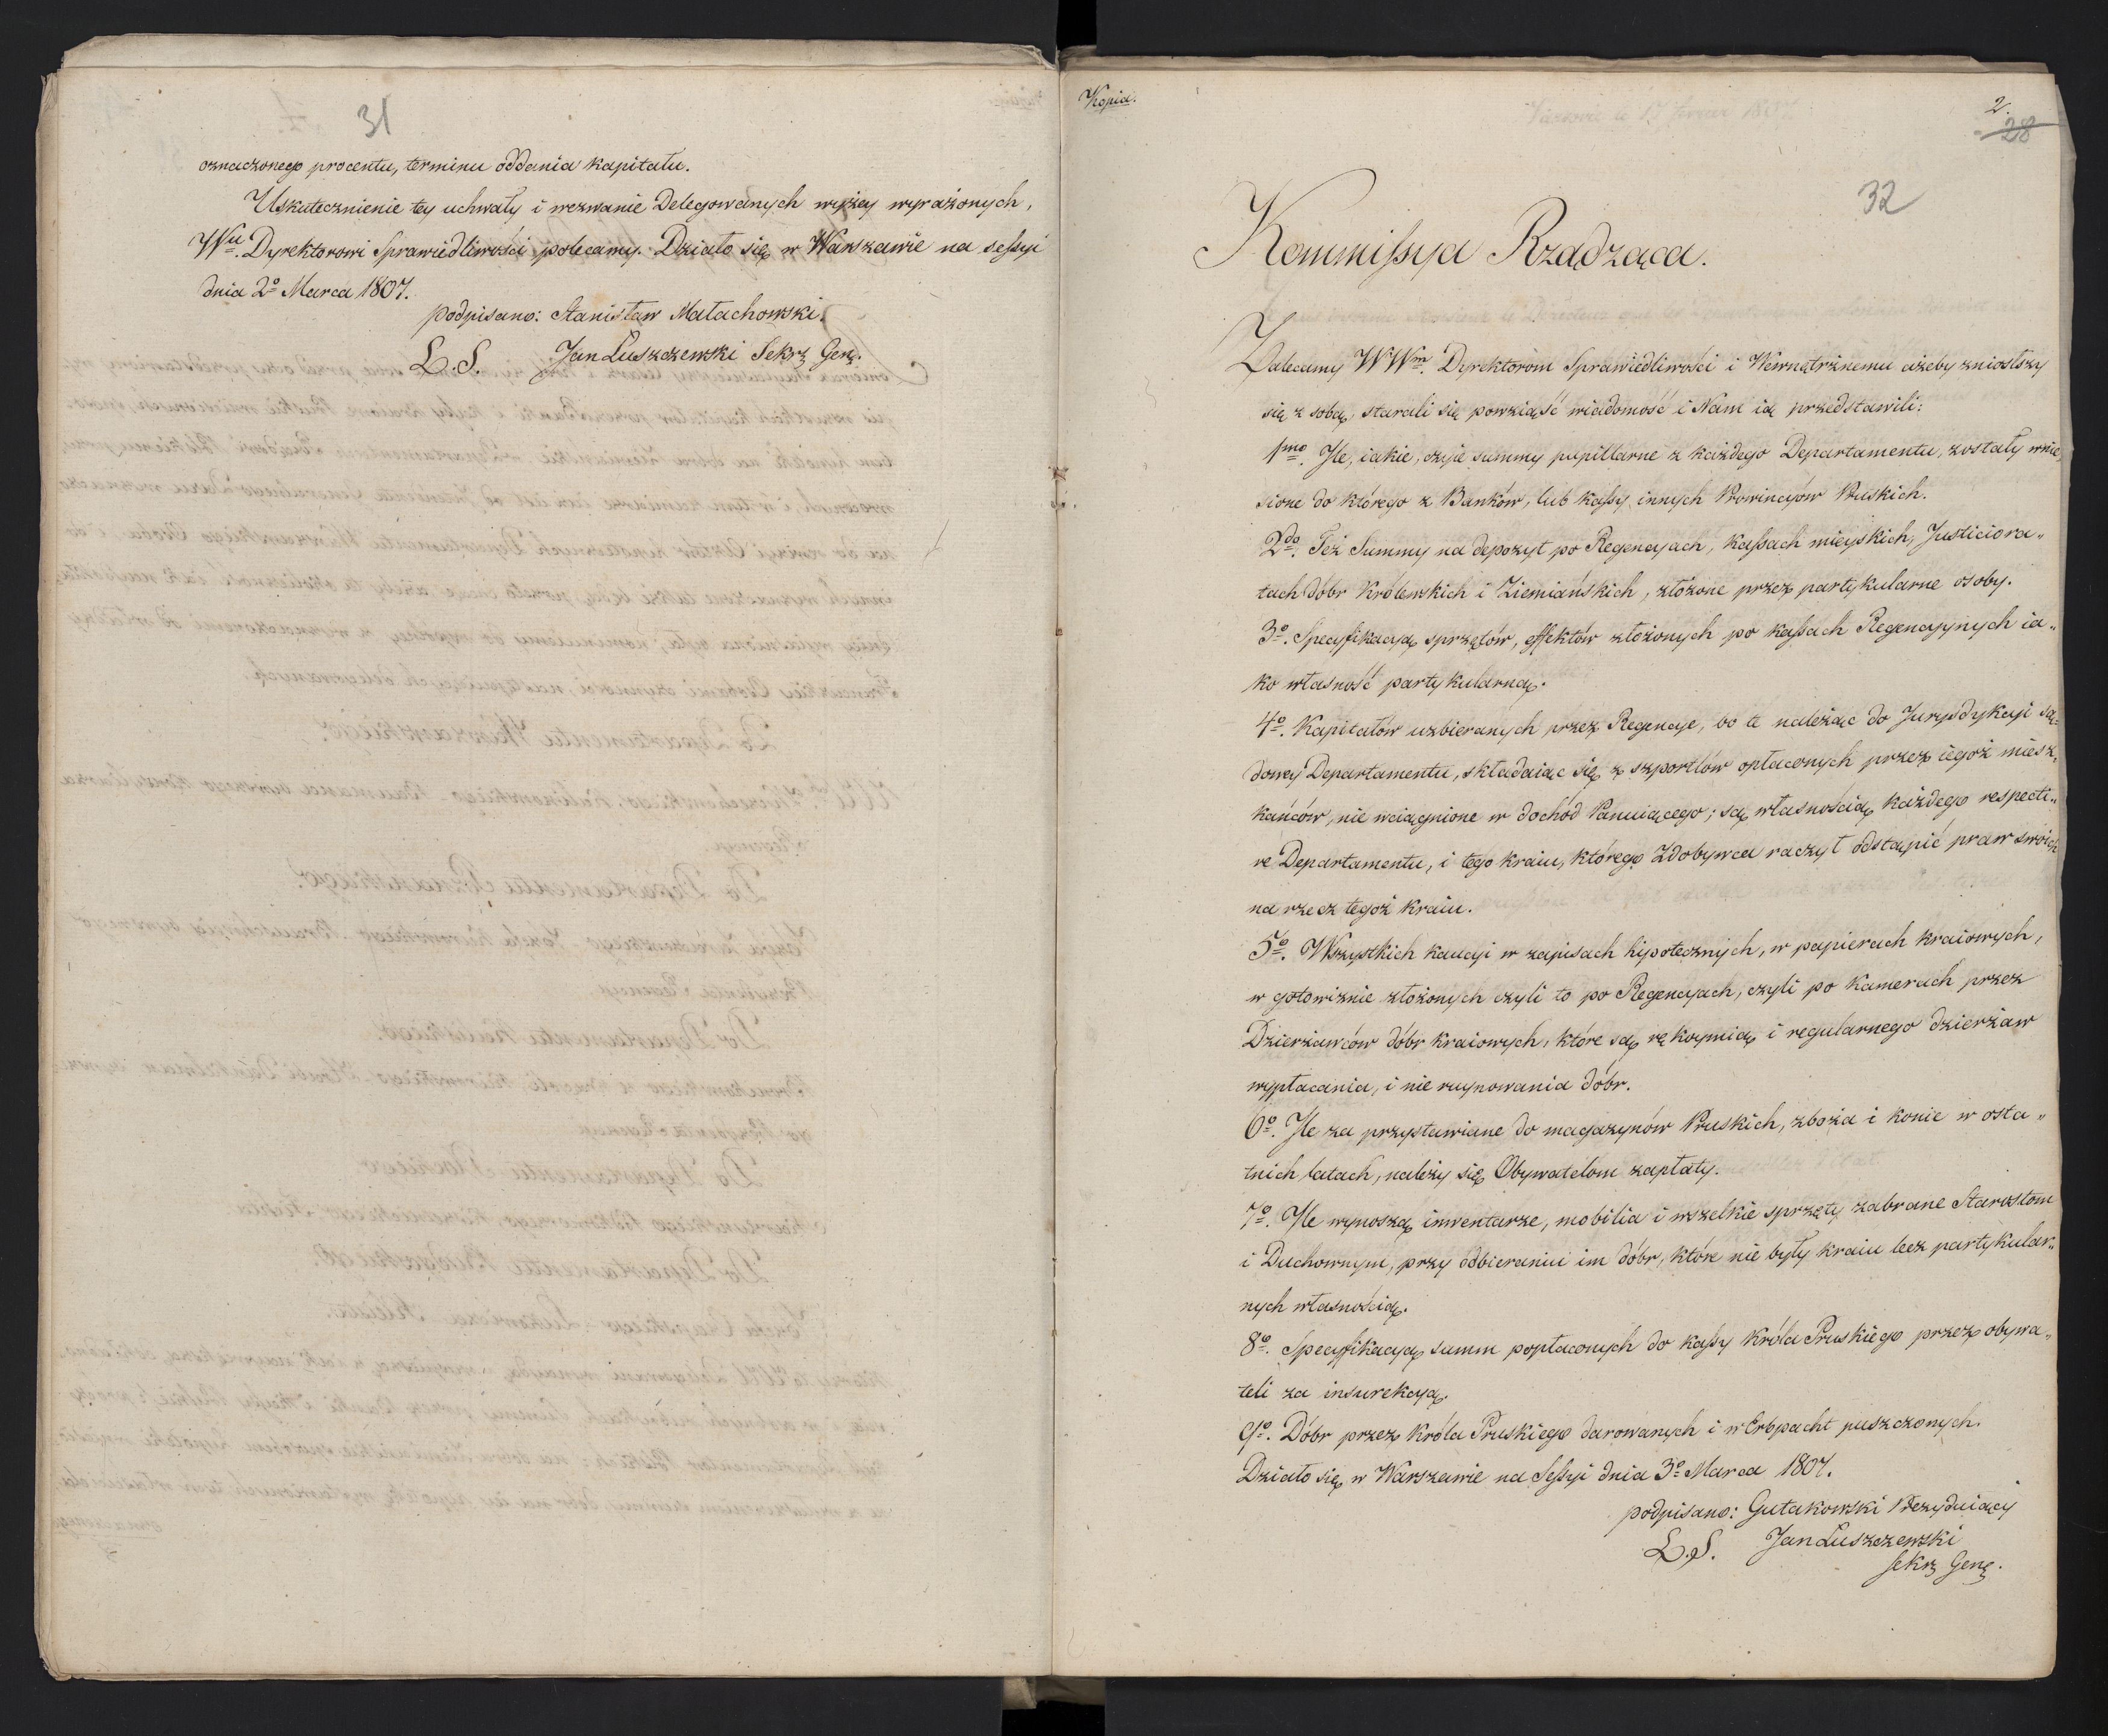 31
oznaczonego procentu, terminu oddania kapitału.
Uskutecznienie tey uchwały i wezwanie Delegowanych wyżey wyrażonych,
Wu. Dyrektorowi Sprawiedliwości polecamy. Działo się w Warszawie na seſsyi
dnia 2o Marca 1807.
podpisano: Stanisław Małachowski.
L. S. Jan Łuszczewski Sekrz Genę.
Kopia.
2.
28
32
Kommiſsya Rządząca.
Zalecamy WWm. Dyrektorom Sprawiedliwości i Wewnątrznemu ażeby zniosłszy
się z sobą, starali się powziąść wiadomość i Nam ią przedstawili:
1mo. Jle, iakie, czyie summy pupillarne z każdego Departamentu, zostały wnie„
sione do którego z Banków, lub kaſsy innych Prowincyów Pruskich.
2do. Też Summy na depozyt po Regencyach, kaſsach mieyskich, Justiciora„
tach dóbr Królewskich i Ziemiańskich, złożone przez partykularne osoby.
3o. Specyfikacyą sprzętów, effektów złożonych po kaſsach Regencyynych ia„
ko własność partykularną.
4o. Kapitałów uzbieranych przez Regencye, bo te należąc do Jurysdykcyi są„
dowey Departamentu, składaiąc się z szportlów opłaconych przez iegoż miesz„
kańców, nie wciągnione w dochód Panuiącego; są własnością każdego respecti„
ve Departamentu, i tego kraiu, którego Zdobywca raczył odstąpić praw swoich
na rzecz tegoż kraiu.
5o. Wszystkich kaucyi w zapisach hipotecznych, w papierach kraiowych,
w gotowiznie złożonych czyli to po Regencyach, czyli po Kamerach przez
Dzierżawców dóbr kraiowych, które są rękoymią i regularnego dzierżaw
wypłacania, i nie ruynowania dóbr.
6o. Jle za przystawiane do magazynów Pruskich, zboża i konie w osta„
tnich latach, należy się Obywatelom zapłaty.
7o. Jle wynoszą inwentarze, mobilia i wszelkie sprzęty zabrane Starostom
i Duchownym, przy odbieraniu im dóbr, które nie były kraiu lecz partykular„
nych własnością.
8o. Specyfikacyą summ popłaconych do kaſsy Króla Pruskiego przez obywa„
teli za insurekcyą.
9o. Dóbr przez Króla Pruskiego darowanych i w Erbpacht puszczonych.
Działo się w Warszawie na Seſsyi dnia 3o Marca 1807.
podpisano: Gutakowski Prezyduiący
L. S. Jan Łuszczewski
Sekrz Genę.